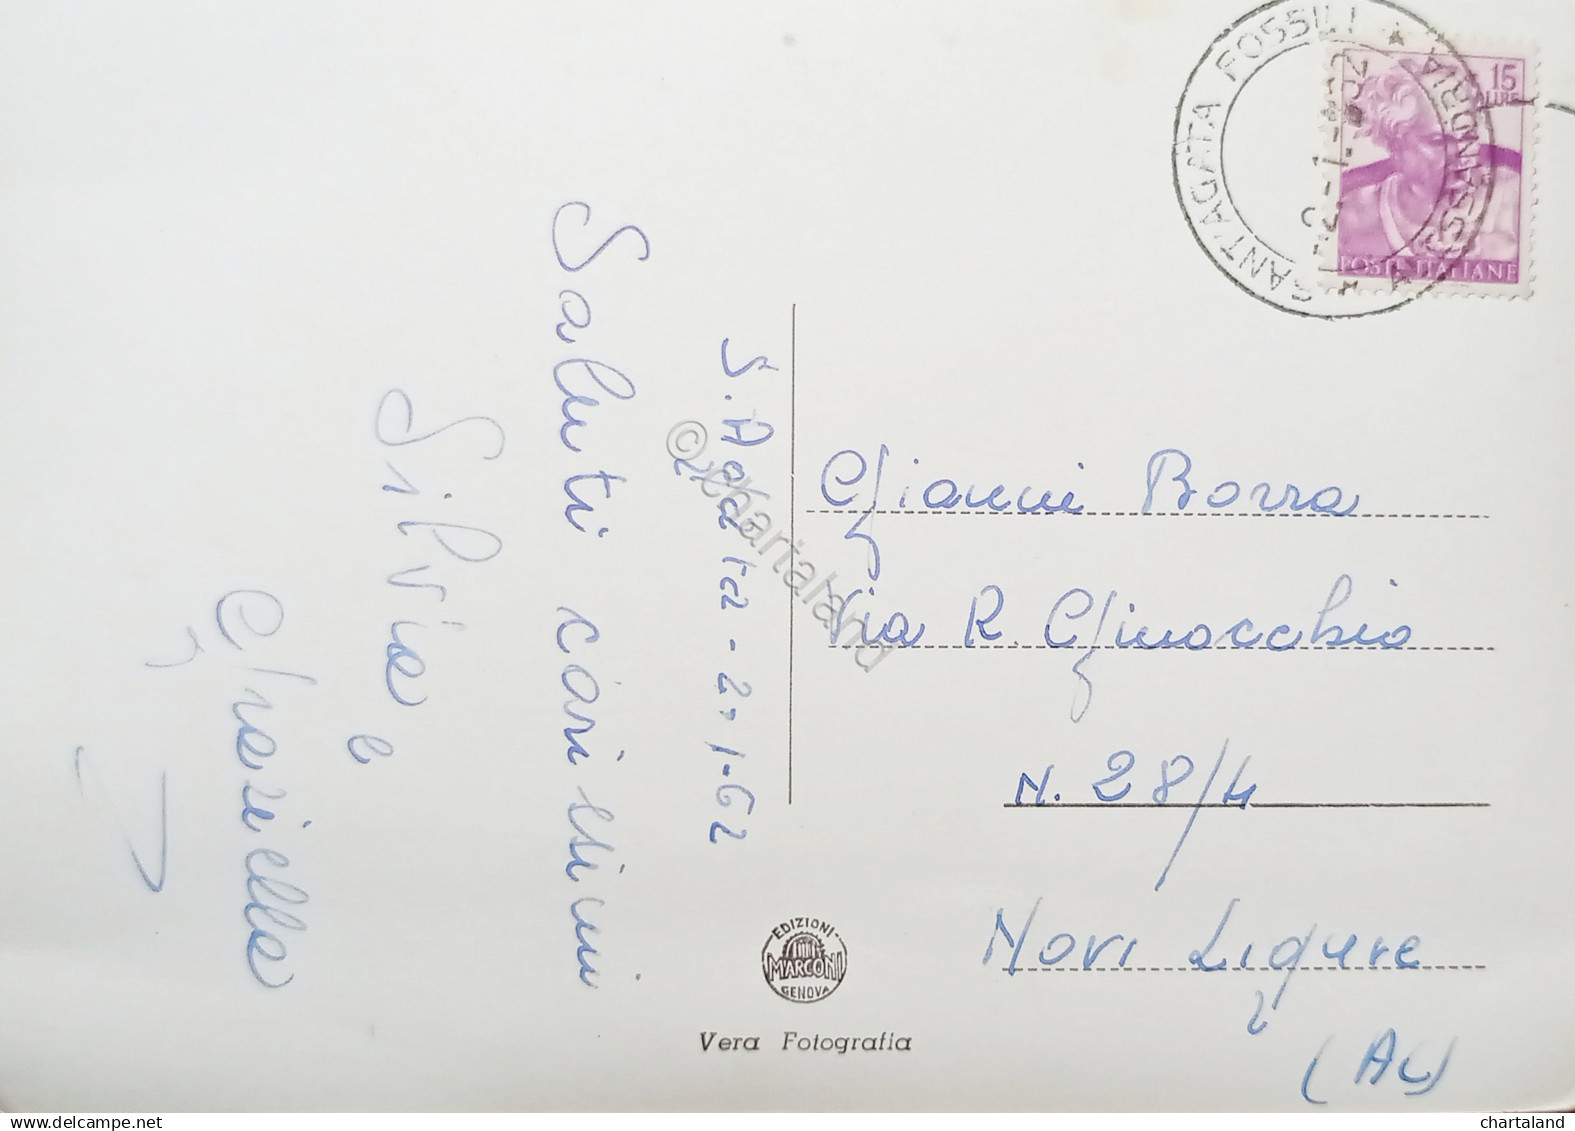 SANT'AGATA FOSSILI ★ ALESSANDRIA ★
2 - 1 - 62
15
LIRE
POSTE ITALIANE
S. Agata - 2-1-62
Saluti carissimi
Silvia
e
Graziella
Gianni Borra
Via R. Ginocchio
N. 28/4
Novi Ligure
(AL)
EDIZIONI
MARCONI
GENOVA
Vera Fotografia
© chartaland
www.delcampe.net
chartaland